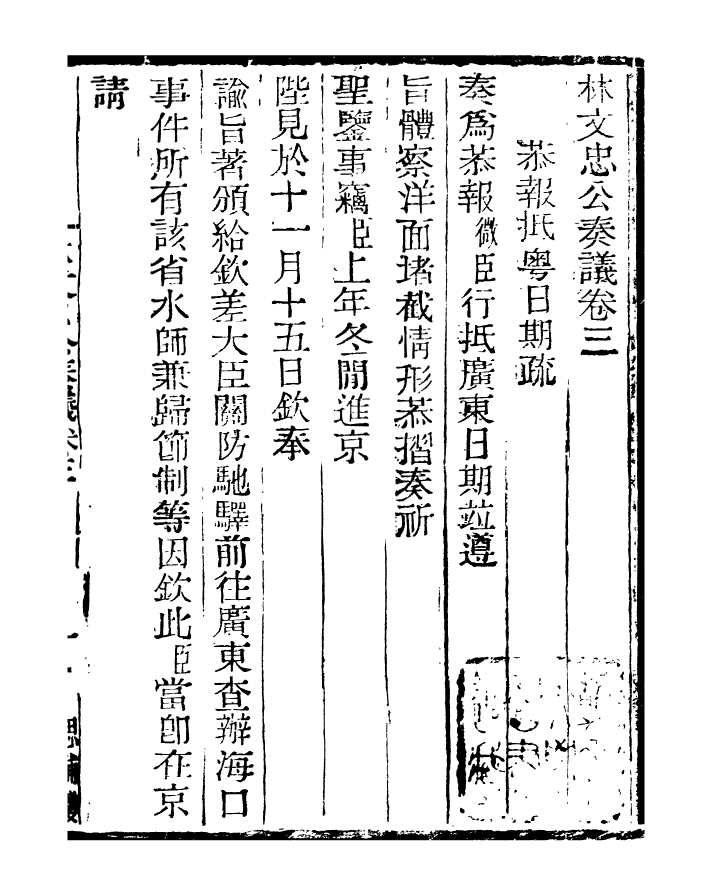 林文忠公奏議卷三
恭報抵粤日期疏
奏爲恭報微臣行抵廣東日期竝遵
旨體察洋面堵截情形恭摺奏祈
聖鑒事竊臣上年冬閒進京
陛見於十一月十五日欽奉
諭旨著頒給欽差大臣關防馳驛前往廣東查辦海口
事件所有該省水師兼歸節制等因欽此臣當卽在京
請